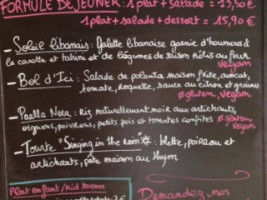 FORMULE DEJEUNER: 1 plat + salade = 13,50 €
1 plat + salade + dessert = 15,90 €
- Soleil libanais: Galette libanaise garnie d'houmous à
la carotte et tahini et de légumes de saison rôtis au four
Vegan
- Bol d'Ici: Salade de polenta, maïs, fève, avocat,
tomate, roquette, sauce au citron et graines
∅ gluten, vegan
- Paella Nera: Riz naturellement noir aux artichauts,
oignons, poivrons, petits pois et tomates confites
∅ gluten, vegan
- Tourte "Singing in the rain": blette, poireau et
artichauts, pâte maison au thym
Plat enfant/Kid menu
Demandez nos